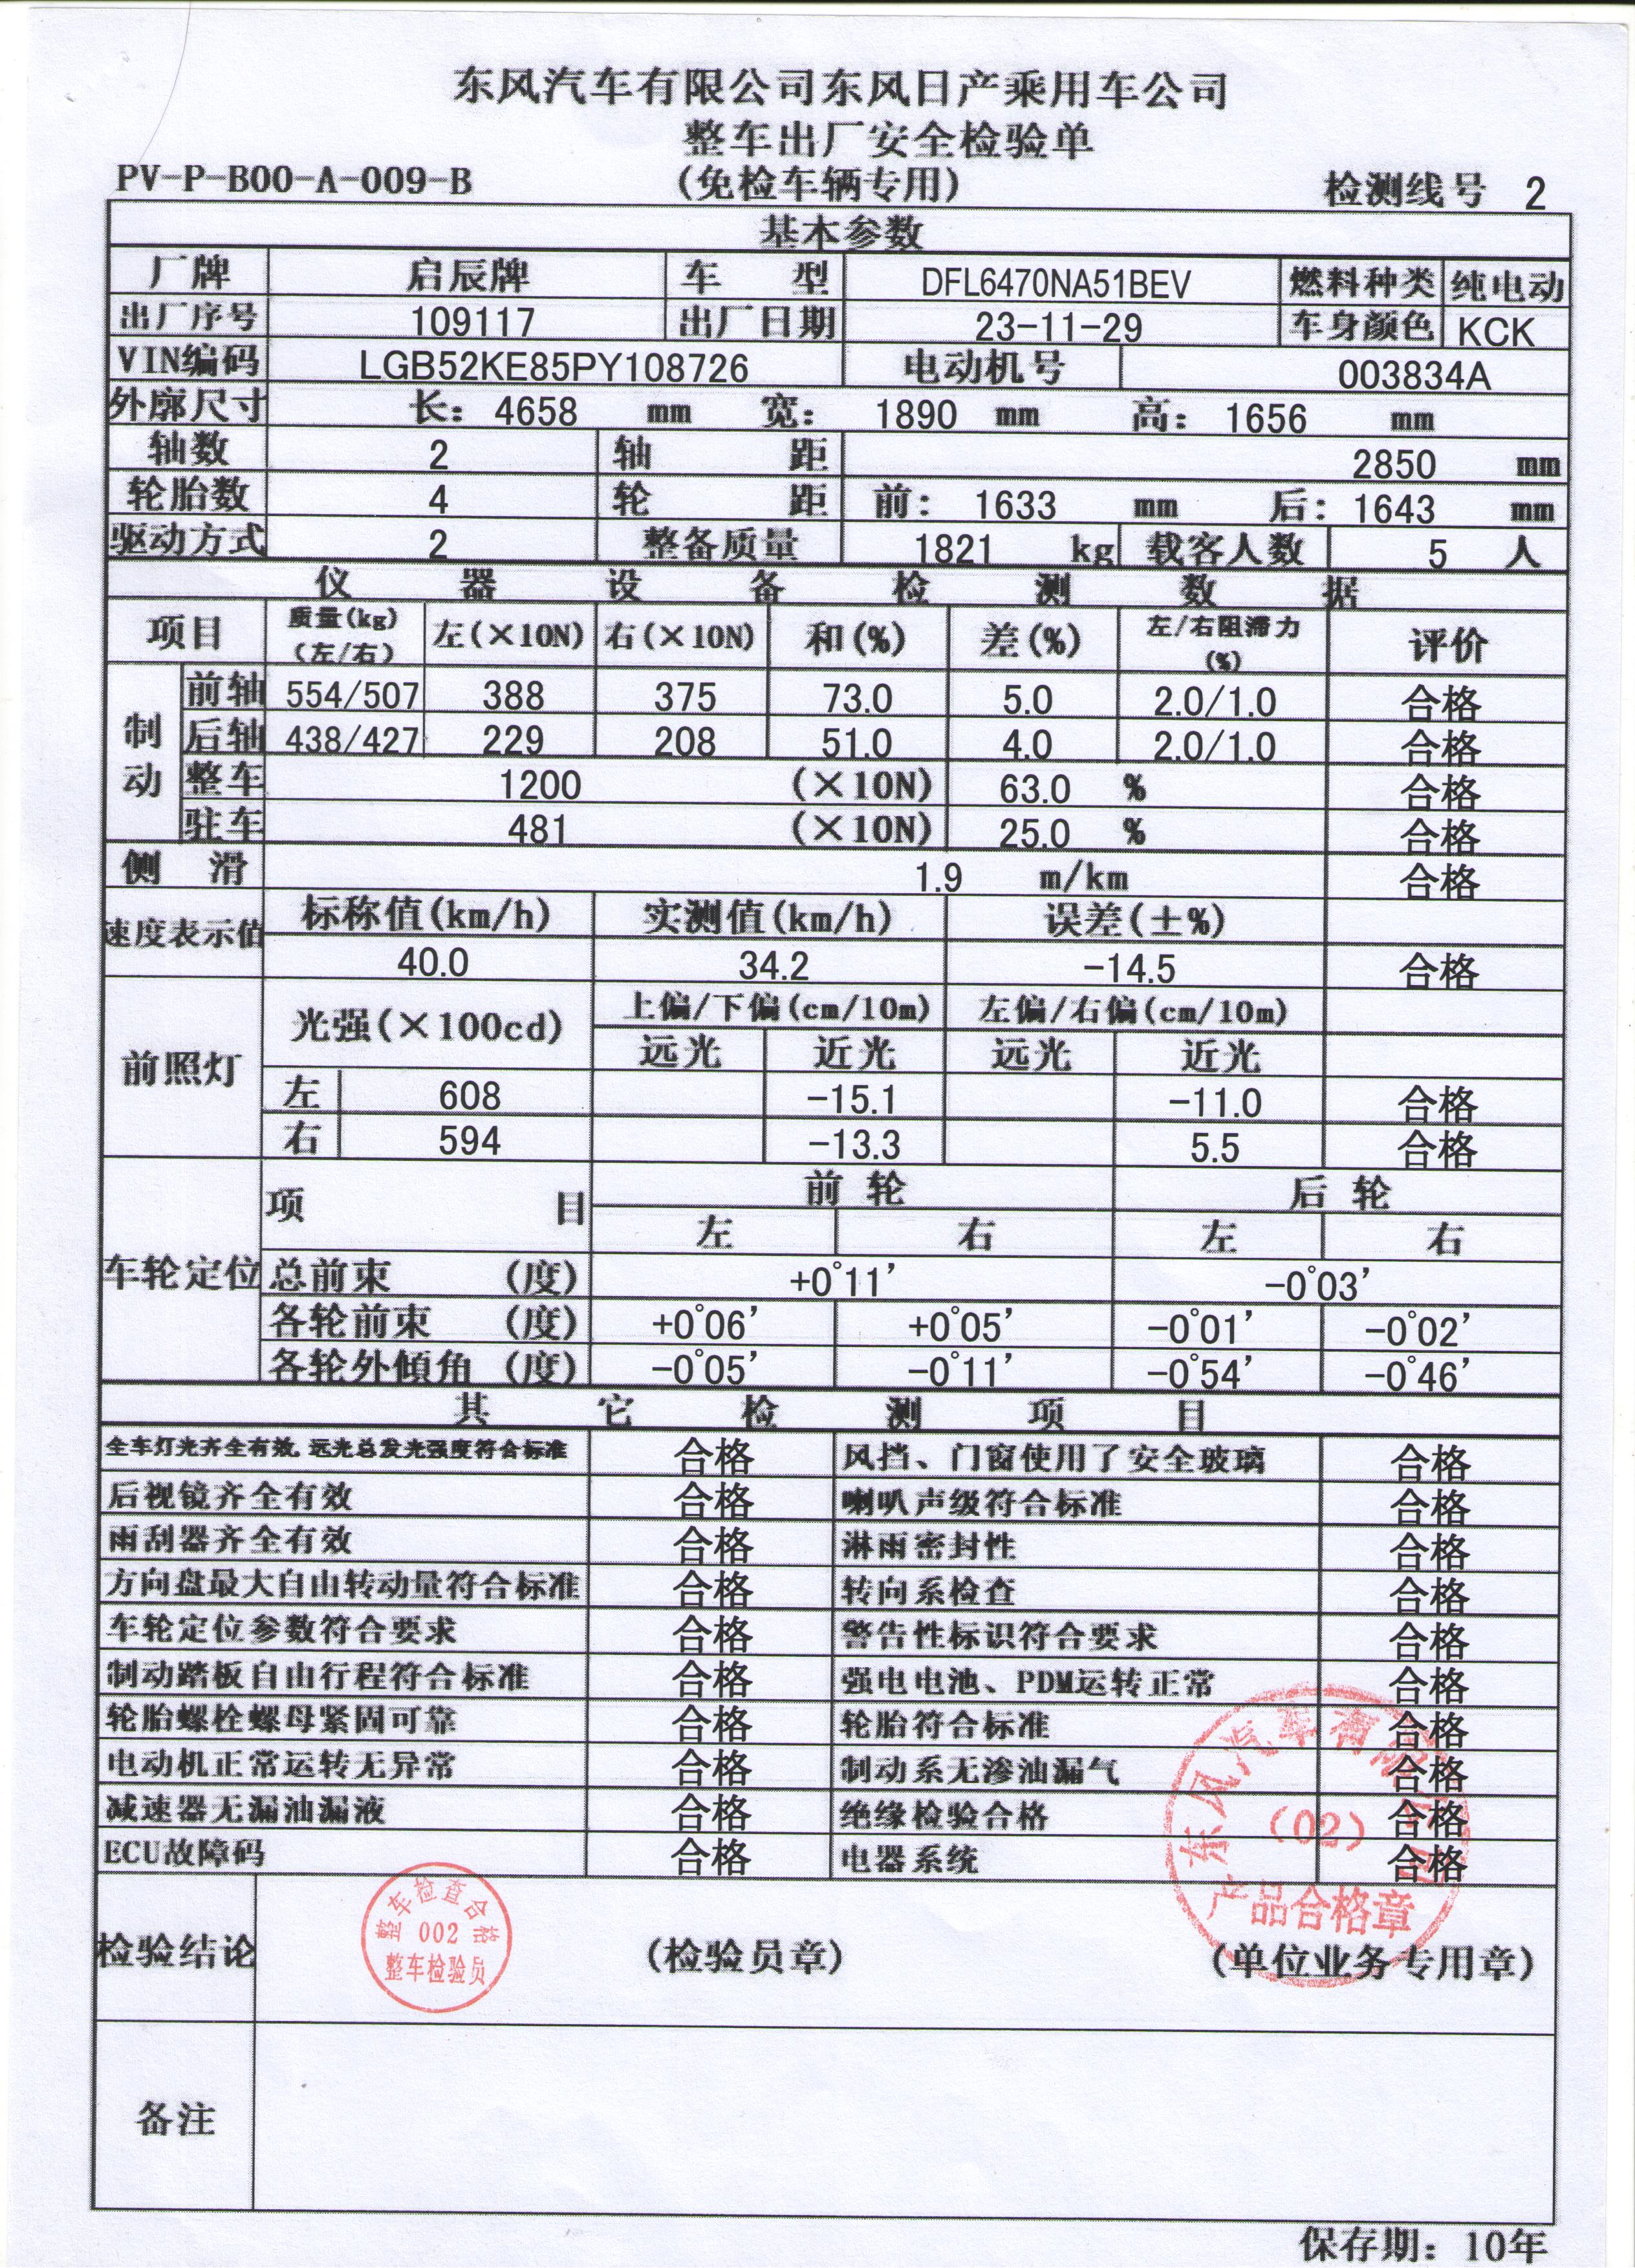 东风汽车有限公司东风日产乘用车公司
整车出厂安全检验单
PV-P-B00-A-009-B (免检车辆专用) 检测线号 2
基本参数
厂牌 启辰牌 车 型 DFL6470NA51BEV 燃料种类 纯电动
出厂序号 109117 出厂日期 23-11-29 车身颜色 KCK
VIN编码 LGB52KE85PY108726 电动机号 003834A
外廓尺寸 长: 4658 mm 宽: 1890 mm 高: 1656 mm
轴数 2 轴 距 2850 mm
轮胎数 4 轮 距 前: 1633 mm 后: 1643 mm
驱动方式 2 整备质量 1821 kg 载客人数 5 人
仪 器 设 备 检 测 数 据
项目 质量(kg)(左/右) 左(×10N) 右(×10N) 和(%) 差(%) 左/右阻滞力(%) 评价
制动 前轴 554/507 388 375 73.0 5.0 2.0/1.0 合格
后轴 438/427 229 208 51.0 4.0 2.0/1.0 合格
整车 1200 (×10N) 63.0 % 合格
驻车 481 (×10N) 25.0 % 合格
侧 滑 1.9 m/km 合格
速度表示值 标称值(km/h) 实测值(km/h) 误差(±%)
40.0 34.2 -14.5 合格
前照灯 光强(×100cd) 上偏/下偏(cm/10m) 左偏/右偏(cm/10m)
远光 近光 远光 近光
左 608 -15.1 -11.0 合格
右 594 -13.3 5.5 合格
车轮定位 项 目 前 轮 后 轮
左 右 左 右
总前束 (度) +0°11’ -0°03’
各轮前束 (度) +0°06’ +0°05’ -0°01’ -0°02’
各轮外倾角 (度) -0°05’ -0°11’ -0°54’ -0°46’
其 它 检 测 项 目
全车灯光齐全有效,远光总发光强度符合标准 合格 风挡、门窗使用了安全玻璃 合格
后视镜齐全有效 合格 喇叭声级符合标准 合格
雨刮器齐全有效 合格 淋雨密封性 合格
方向盘最大自由转动量符合标准 合格 转向系检查 合格
车轮定位参数符合要求 合格 警告性标识符合要求 合格
制动踏板自由行程符合标准 合格 强电电池、PDM运转正常 合格
轮胎螺栓螺母紧固可靠 合格 轮胎符合标准 合格
电动机正常运转无异常 合格 制动系无渗油漏气 合格
减速器无漏油漏液 合格 绝缘检验合格 合格
ECU故障码 合格 电器系统 合格
东风汽车有限公司
(02)
产品合格章
整车检查合格
002
整车检验员
检验结论 (检验员章) (单位业务专用章)
备注
保存期: 10年